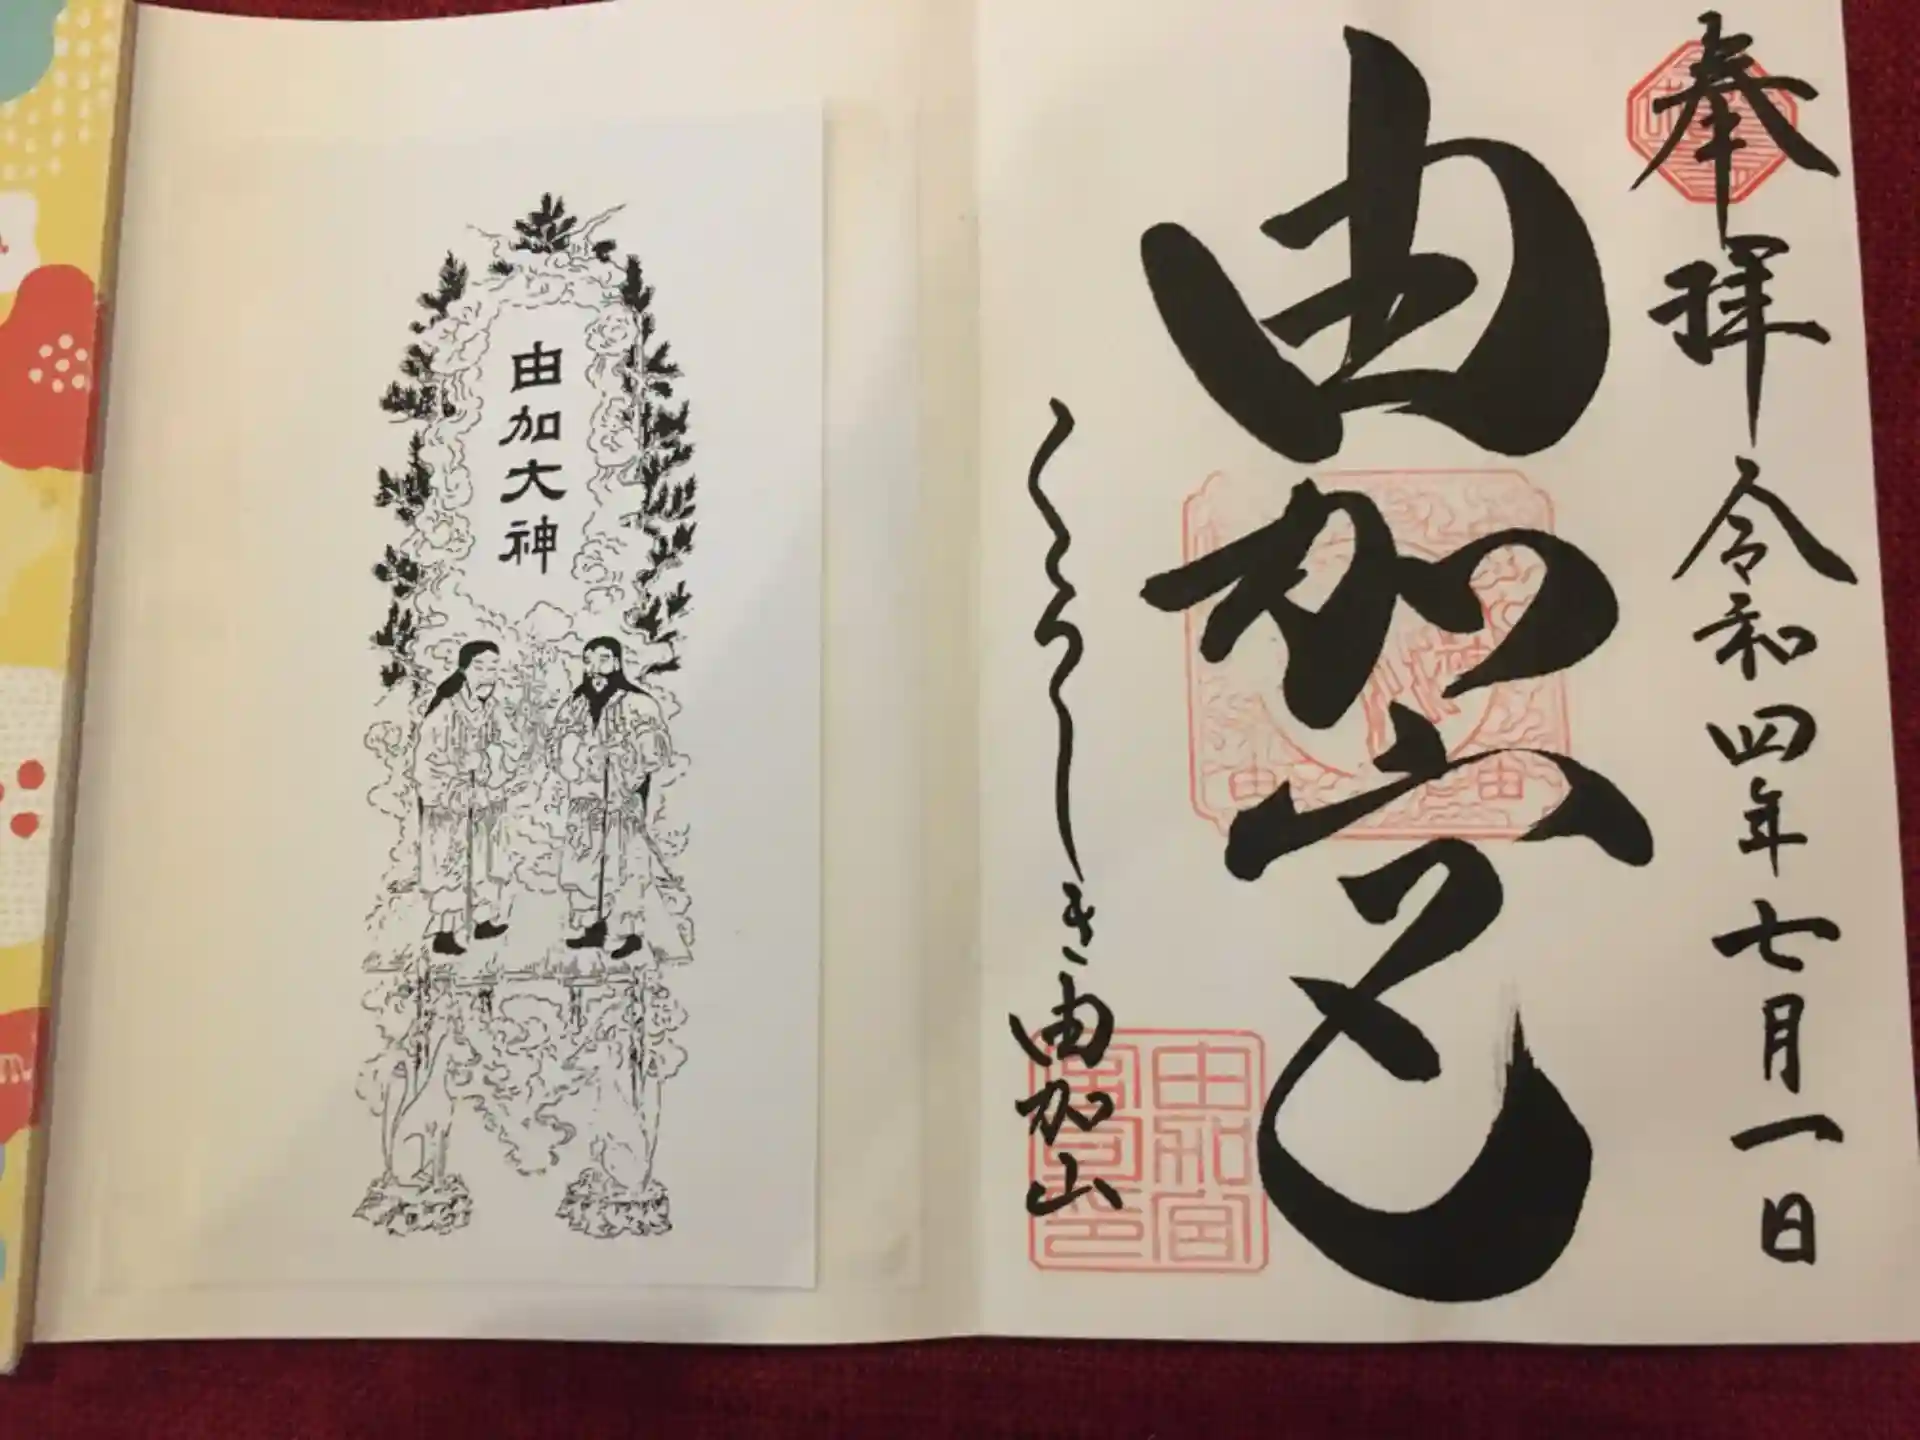 奉拝 令和四年七月一日
由加宮
くらしき由加山
由加大神